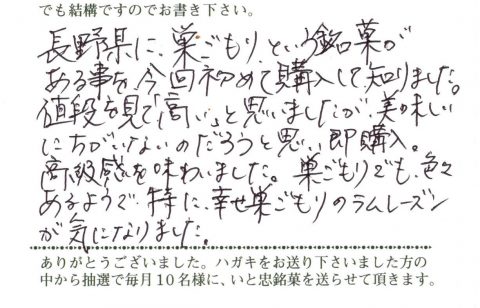 でも結構ですのでお書き下さい。
長野県に、巣ごもり、という銘菓が
ある事を、今回初めて購入して知りました。
値段を見て「高い」と思いましたが、美味しい
にちがいないのだろうと思い、即購入。
高級感を味わいました。巣ごもりでも、色々
あるようで、特に、幸せ巣ごもりのラムレーズン
が気になりました。
ありがとうございました。ハガキをお送り下さいました方の
中から抽選で毎月10名様に、いと忠銘菓を送らせて頂きます。